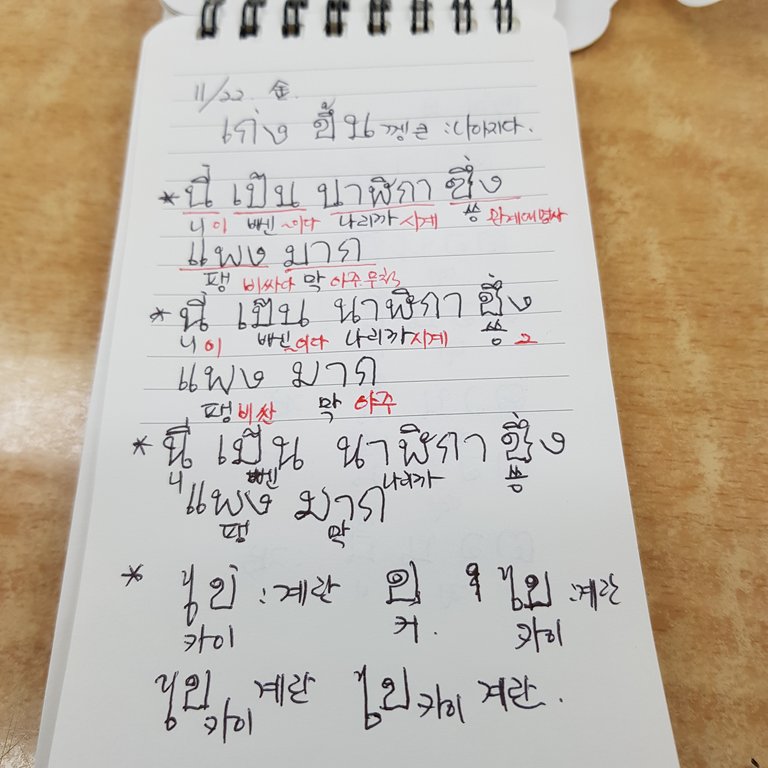 11/22. 金.
เก่ง ขึ้น 껭 큰 :나아지다.
* นี่ เป็น นาฬิกา ซึ่ง
니 이 뻰 ~이다 나리까 시계 씅 관계대명사
แพง มาก
팽 비싸다 막 아주.무척
* นี่ เป็น นาฬิกา ซึ่ง
니 이 뻰 ~이다 나리까 시계 씅 그
แพง มาก
팽 비싼 막 아주
* นี่ เป็น นาฬิกา ซึ่ง
니 뻰 나리까 씅
แพง มาก
팽 막
* ไข่ :계란 ข ไข : 계란
카이 커. 카이
ไข 카이 계란 ไข 카이 계란.